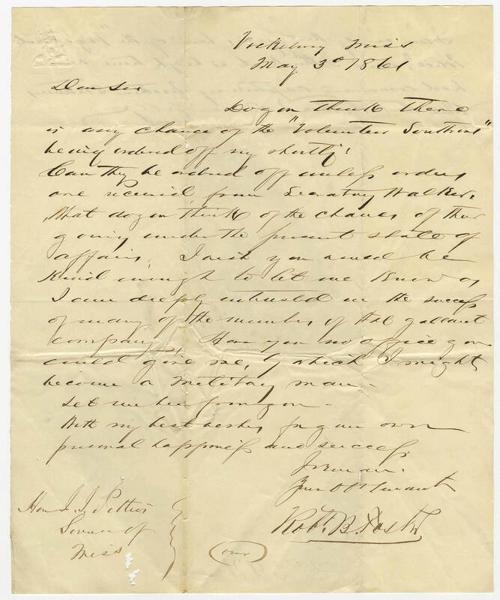 Vicksburg Miss
May 3d 1861
Dear Sir
Do you think there
is any chance of the "Volunteer Southrons"
being ordered off very shortly?
Can they be ordered off unless orders
are received from Secretary Walker.
What do you think of the chances of their
going under the present state of
affairs. I wish you would be
kind enough to let me know as
I am deeply interested in the success
of many of the members of that gallant
company. Have you no office you
could give me, by which I might
become a military man.
Let me hear from you.
With my best wishes for your own
personal happiness and success
I remain
Your Obt Servant
Robt. B.
Hon J. J. Pettus
Governor of
Miss
(over)